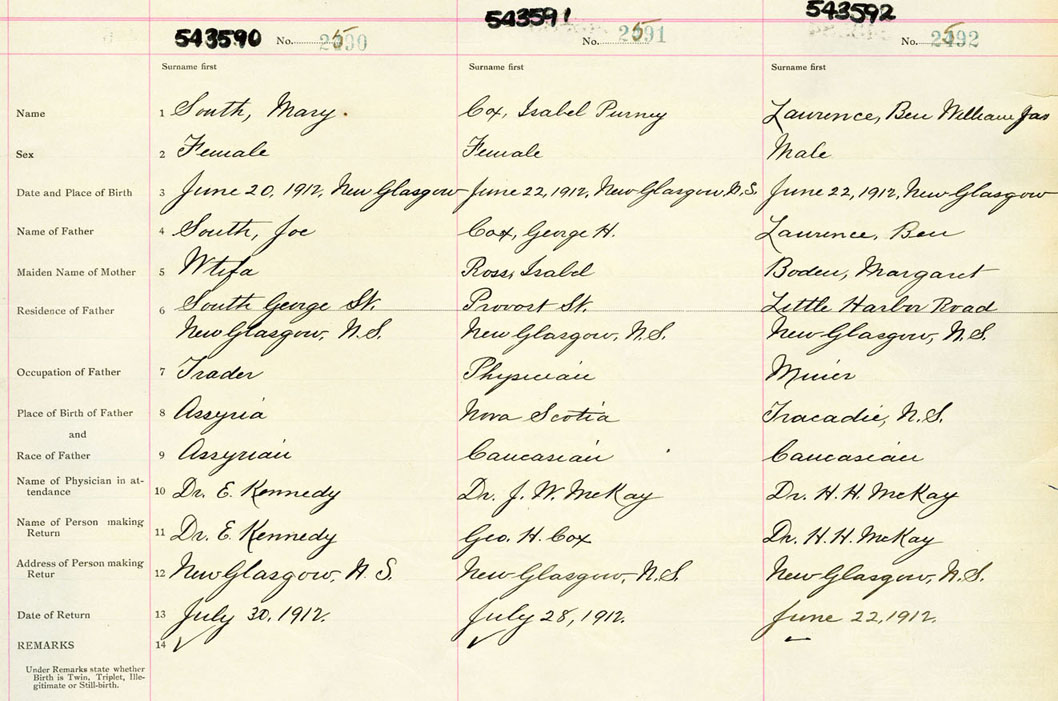 543590 No. 2590
543591 No. 2591
543592 No. 2592
Surname first Surname first Surname first
Name 1 South, Mary. Cox, Isabel Purney Lawrence, Ben William Jas
Sex 2 Female Female Male
Date and Place of Birth 3 June 20, 1912, New Glasgow June 22, 1912, New Glasgow, N.S. June 22, 1912, New Glasgow
Name of Father 4 South, Joe Cox, George H. Lawrence, Ben
Maiden Name of Mother 5 Wtifa Ross, Isabel Boden, Margaret
Residence of Father 6 South George St. Provost St. Little Harbor Road
New Glasgow, N.S. New Glasgow, N.S. New Glasgow, N.S.
Occupation of Father 7 Trader Physician Miner
Place of Birth of Father 8 Assyria Nova Scotia Tracadie, N.S.
and
Race of Father 9 Assyrian Caucasian Caucasian
Name of Physician in at-
tendance 10 Dr. E. Kennedy Dr. J. W. McKay Dr. H. H. McKay
Name of Person making
Return 11 Dr. E. Kennedy Geo. H. Cox Dr. H. H. McKay
Address of Person making
Retur 12 New Glasgow, N.S. New Glasgow, N.S. New Glasgow, N.S.
Date of Return 13 July 30, 1912. July 28, 1912. June 22, 1912.
REMARKS 14
Under Remarks state whether
Birth is Twin, Triplet, Ille-
gitimate or Still-birth.